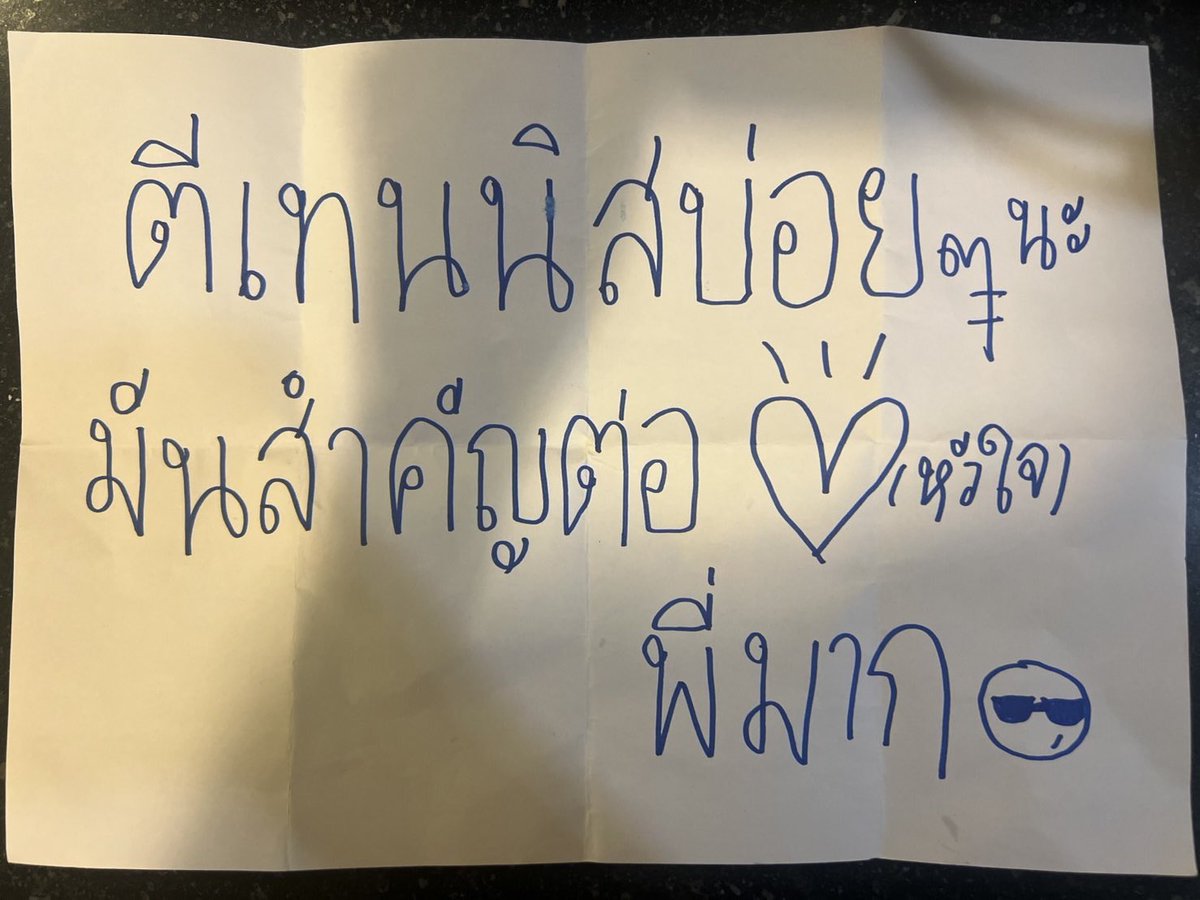 ตีเทนนิสบ่อยๆ นะ
มันสำคัญต่อ ♡ (หัวใจ)
พี่มาก 😎